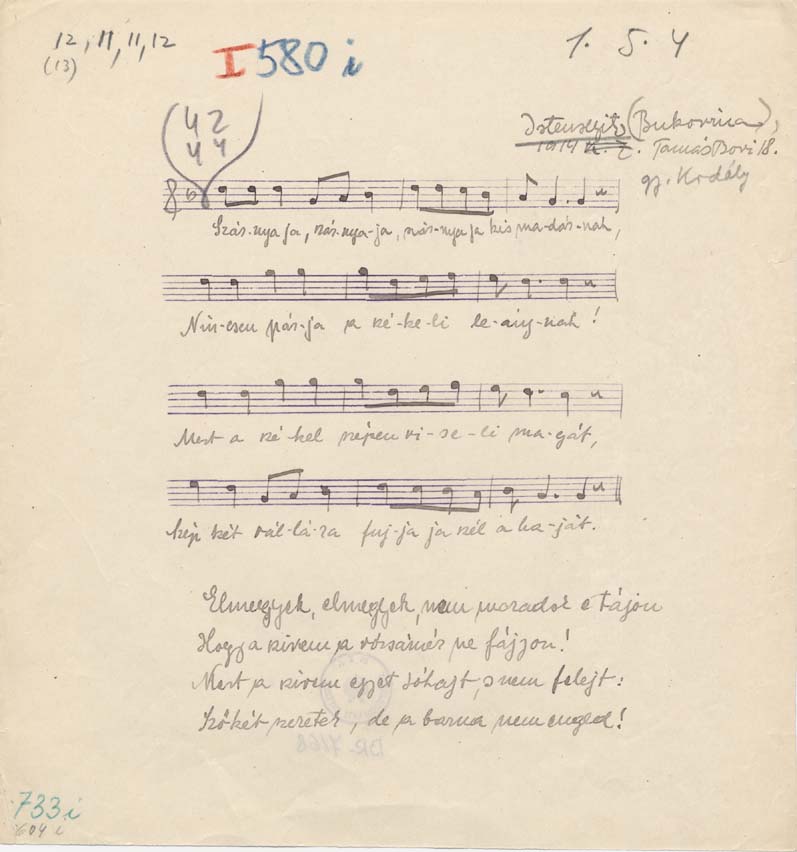 12, 11, 11, 12
(13)
I 580 i
1. 5. 4
42
44
Istensegits (Bukovina),
1914 Tamás Bori 18.
gy. Kodály
Szár-nya ja, szár-nya-ja, szár-nya ja kis ma-dár-nak,
Nin-csen pár-ja a sze-ke-li le-ány-nak!
Mert a szé-kel szépen vi-se-li ma-gát,
két vál-lá-ra fuj-ja ja szél a ha-ját.
Elmegyek, elmegyek, nem maradok e tájon
Hogy a szivem a rózsámér ne fájjon!
Mert a szivem egyet sóhajt, s nem felejt:
Szőkét szeretek, de a barna nem enged!
BR-7168
733 i
604 i